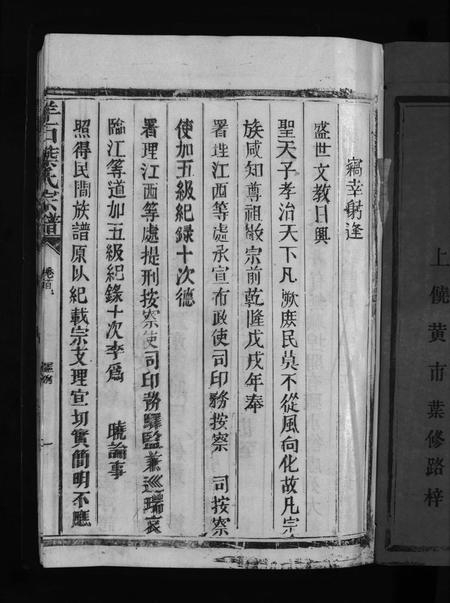 竊幸躬逢
盛世文教日興
聖天子孝治天下凡厥庶民莫不從風向化故凡宗
族咸知尊祖敬宗前乾隆戊戌年奉
署理江西等處承宣布政使司印務按察 司按察
使加五級紀錄十次德
署理江西等處提刑按察使司印務驛監兼巡瑞袁
臨江等道加五級紀錄十次李為 曉諭事
照得民間族譜原以紀載宗支理宜切實簡明不應
葉氏宗譜
卷首
一
上饒黄市葉修路梓